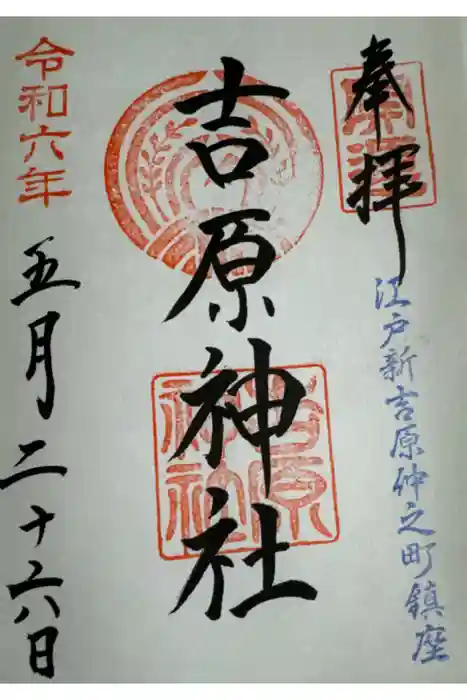 奉拝
江戸新吉原仲之町鎮座
吉原神社
吉原神社
令和六年
五月二十六日